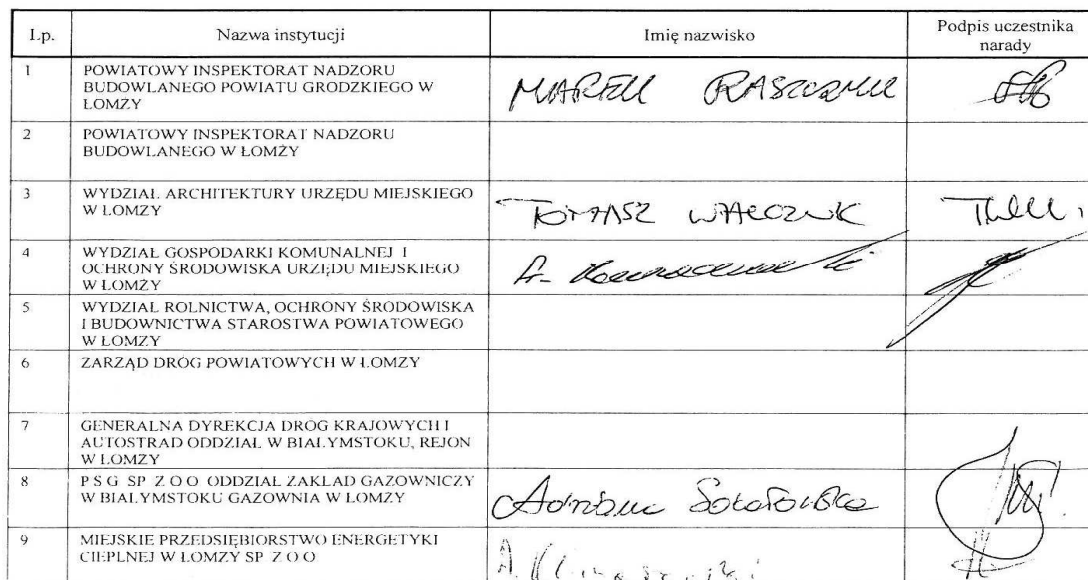 L.p. Nazwa instytucji Imię nazwisko Podpis uczestnika
narady
1 POWIATOWY INSPEKTORAT NADZORU
BUDOWLANEGO POWIATU GRODZKIEGO W
ŁOMŻY
MAREK
2 POWIATOWY INSPEKTORAT NADZORU
BUDOWLANEGO W ŁOMŻY
3 WYDZIAŁ ARCHITEKTURY URZĘDU MIEJSKIEGO
W ŁOMŻY
TOMASZ
4 WYDZIAŁ GOSPODARKI KOMUNALNEJ I
OCHRONY ŚRODOWISKA URZĘDU MIEJSKIEGO
W ŁOMŻY
5 WYDZIAŁ ROLNICTWA, OCHRONY ŚRODOWISKA
I BUDOWNICTWA STAROSTWA POWIATOWEGO
W ŁOMŻY
6 ZARZĄD DRÓG POWIATOWYCH W ŁOMŻY
7 GENERALNA DYREKCJA DRÓG KRAJOWYCH I
AUTOSTRAD ODDZIAŁ W BIAŁYMSTOKU, REJON
W ŁOMŻY
8 P S G SP Z O O ODDZIAŁ ZAKŁAD GAZOWNICZY
W BIAŁYMSTOKU GAZOWNIA W ŁOMŻY
Adriana Sokołowska
9 MIEJSKIE PRZEDSIĘBIORSTWO ENERGETYKI
CIEPLNEJ W ŁOMŻY SP Z O O
A.